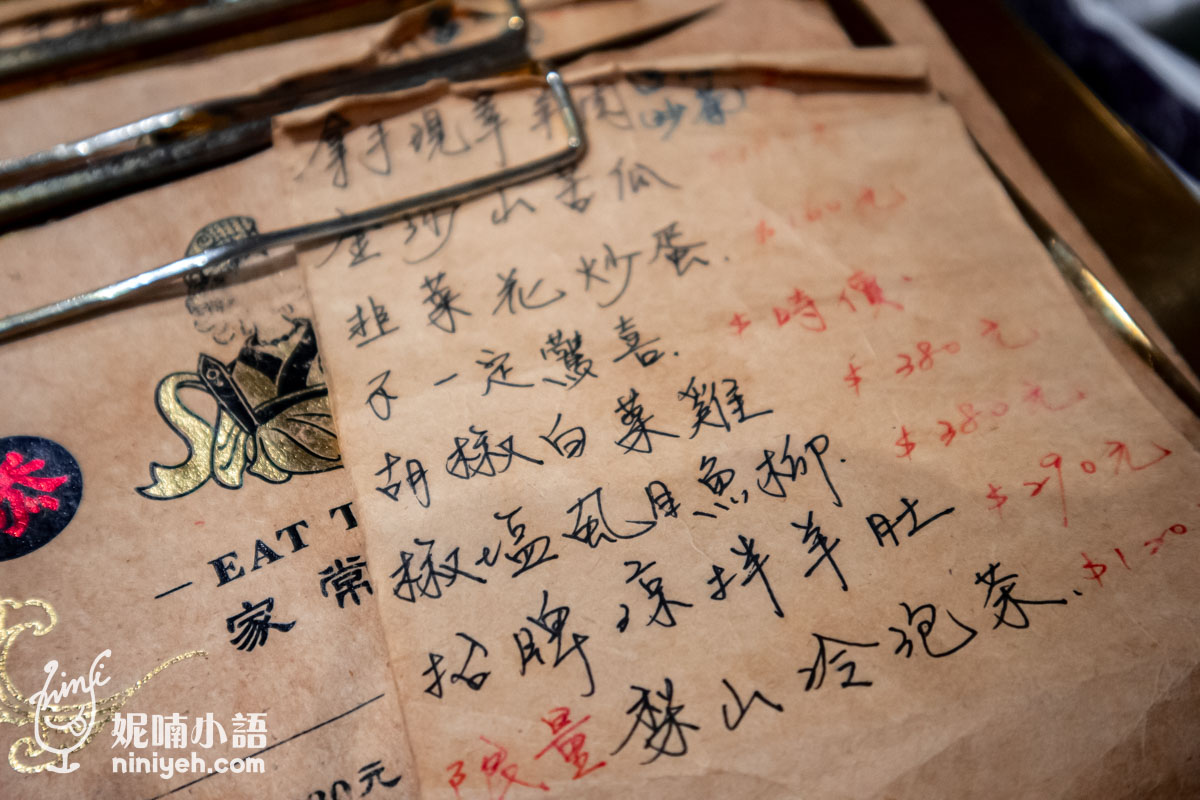 拿手現宰羊肉(炒菜)
金沙山苦瓜
韭菜花炒蛋. $160元
不一定驚喜. $時價.
胡椒白菜雞 $380元
椒塩虱目魚柳. $380元.
招牌涼拌羊肚 $290元
限量 梨山冷泡茶. $120
EAT T
家常
80元
妮喃小語
niniyeh.com